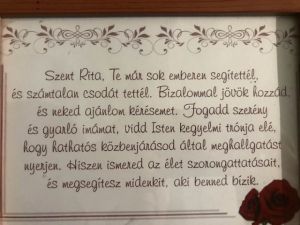 Szent Rita, Te már sok emberen segítettél,
és számtalan csodát tettél. Bizalommal jövök hozzád,
és neked ajánlom kérésemet. Fogadd szerény
és gyarló imámat, vidd Isten kegyelmi trónja elé,
hogy hathatós közbenjárásod által meghallgatást
nyerjen. Hiszen ismered az élet szorongattatásait,
és megsegítesz midenkit, aki benned bízik.